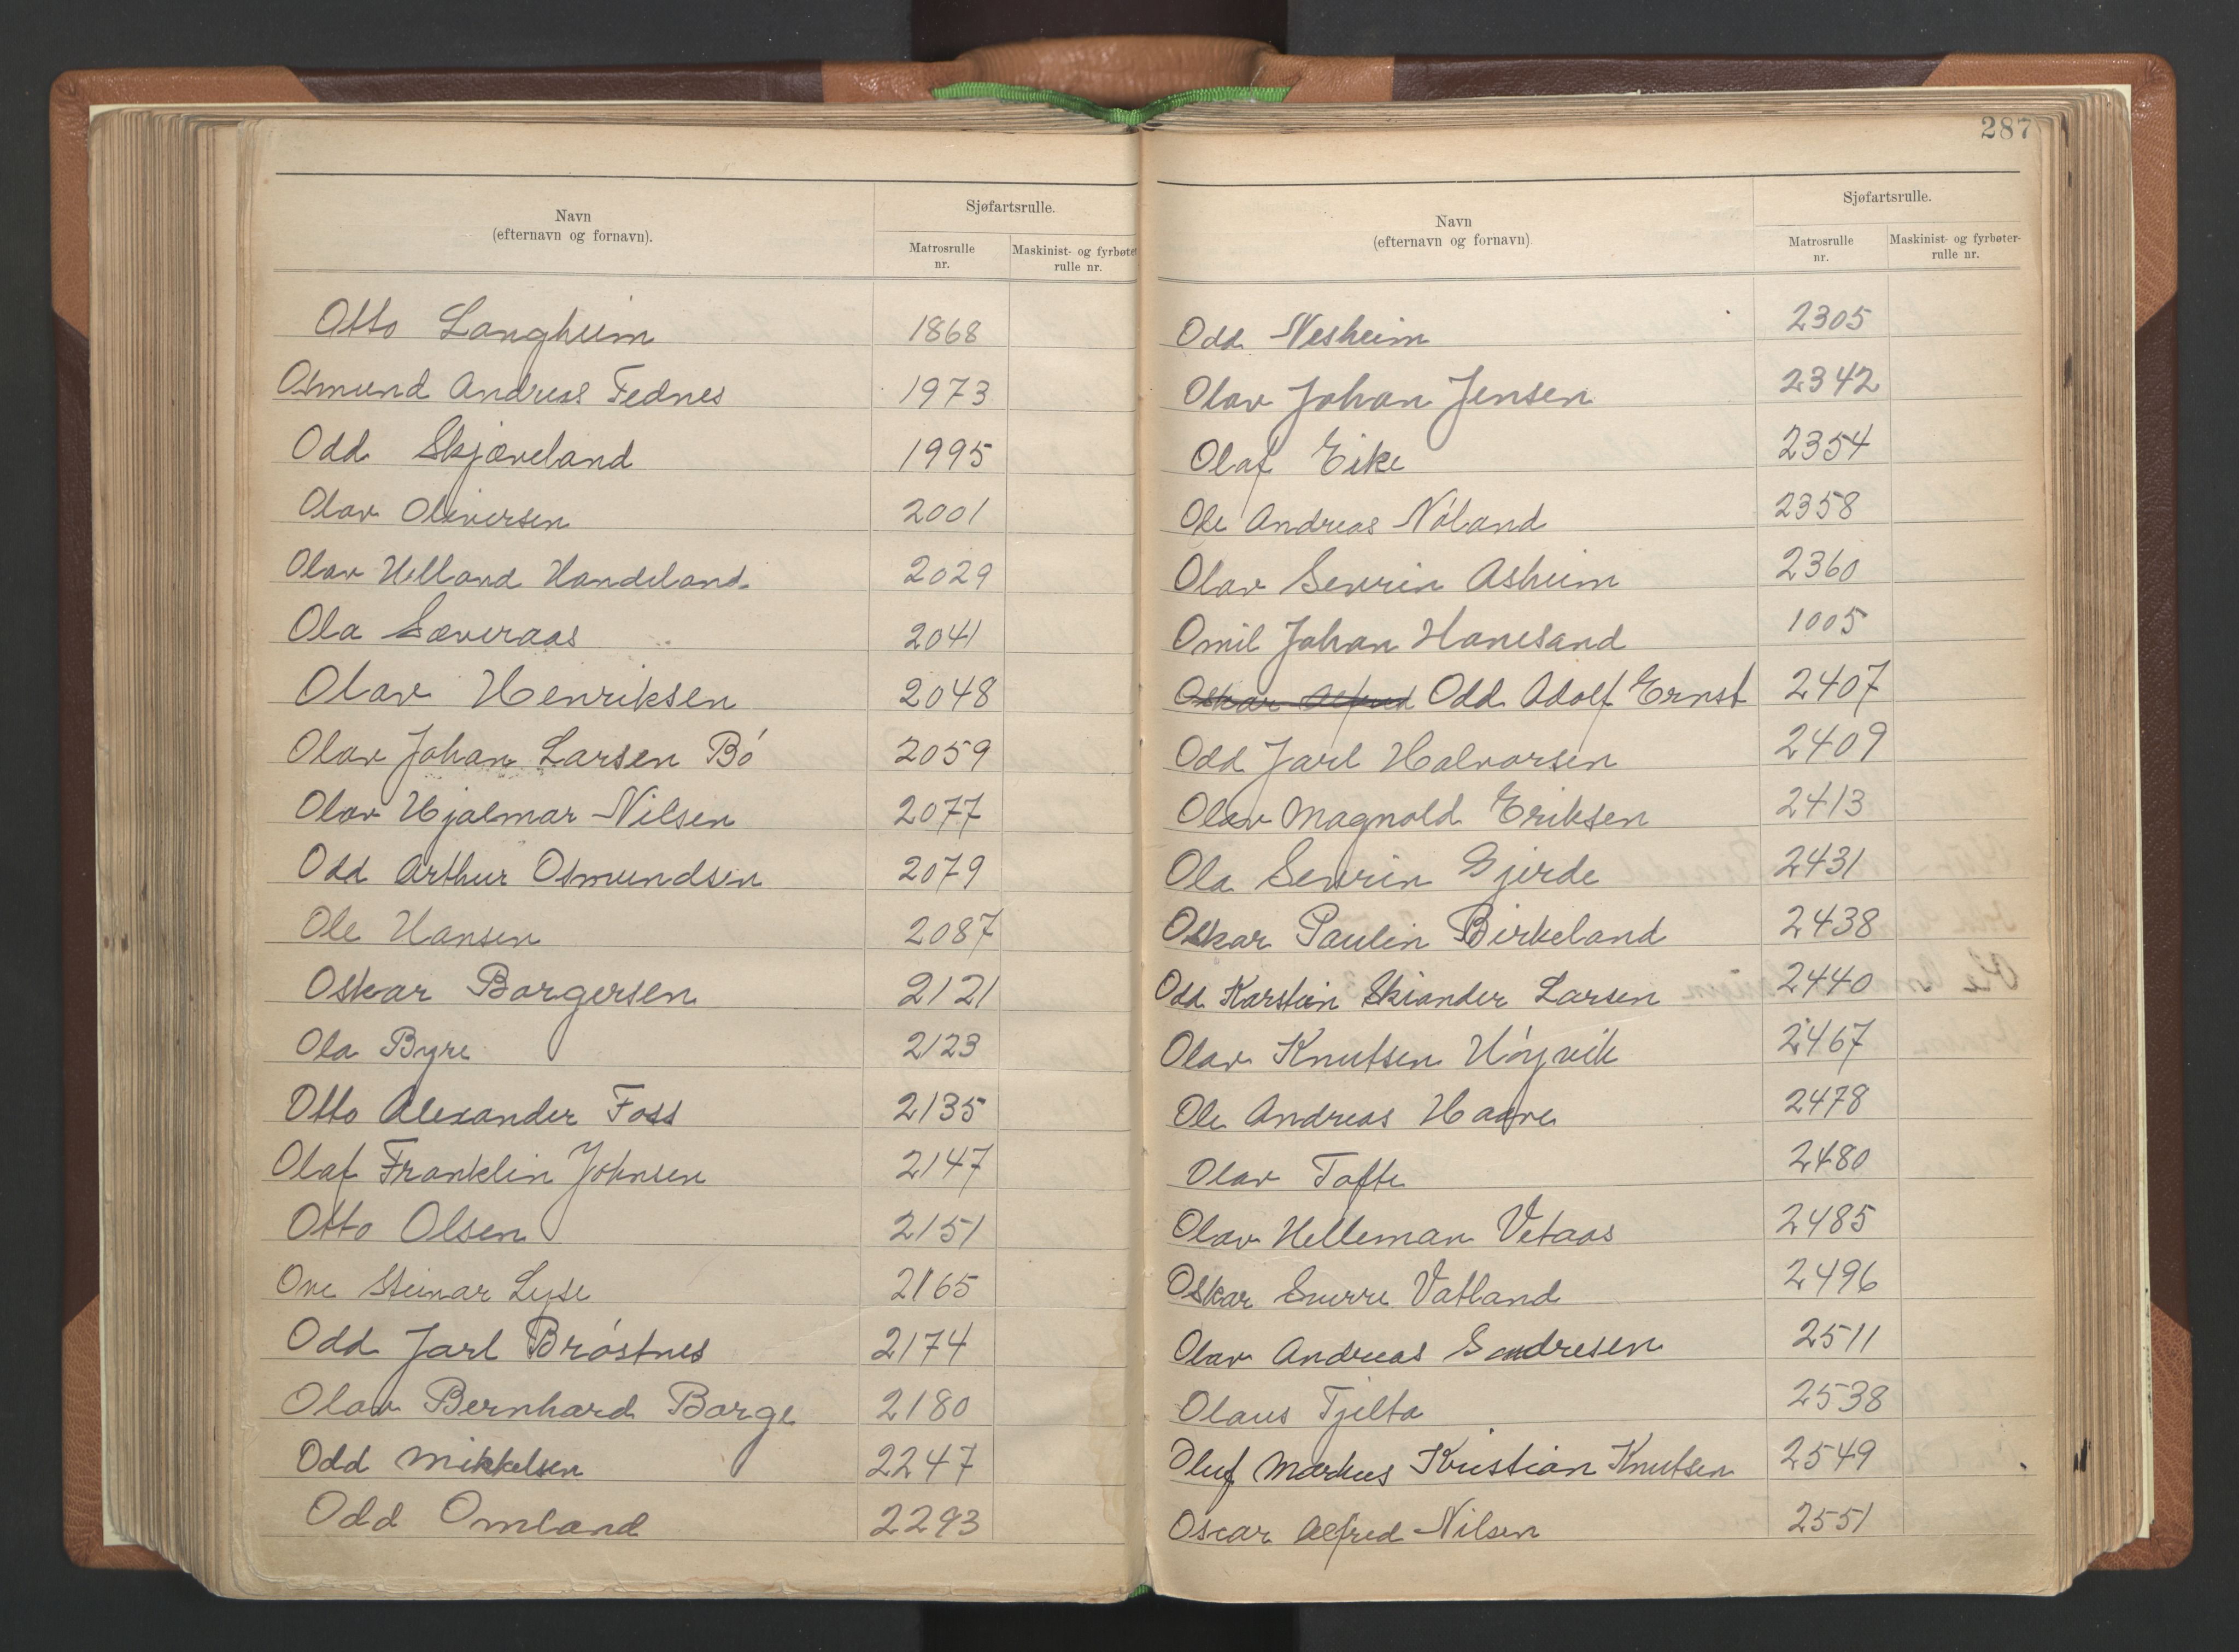 287
Navn
(efternavn og fornavn).
Sjøfartsrulle.
Matrosrulle
nr.
Maskinist- og fyrbøter
rulle nr.
Otto Langheim 1868
Osmund Andreas Fednes 1973
Odd Skjæveland 1995
Olav Oliversen 2001
Olav Helland Handeland. 2029
Ola Sæveraas 2041
Olav Henriksen 2048
Olav Johan Larsen Bó 2059
Olav Hjalmar Nilsen 2077
Odd Arthur Osmundsen 2079
Ole Hansen 2087
Oskar Borgersen 2121
Ola Byre 2123
Otto Alexander Foss 2135
Olaf Franklin Johnsen 2147
Otto Olsen 2151
Ove Steinar Lyse 2165
Odd Jarl Bróstnes 2174
Olav Bernhard Borge 2180
Odd Mikkelsen 2247
Odd Omland 2293
Navn
(efternavn og fornavn)
Sjøfartsrulle.
Matrosrulle
nr.
Maskinist- og fyrbøter-
rulle nr.
Odd Nesheim 2305
Olav Johan Jensen 2342
Olaf Eike 2354
Ole Andreas Nóland 2358
Olav Sevrin Asheim 2360
Omil Johan Hanesand 1005
Oskar Alfred Odd Adolf Ernst 2407
Odd Jarl Halvorsen 2409
Olav Magnold Eriksen 2413
Ola Sevrin Gjerde 2431
Oskar Paulin Birkeland 2438
Odd Karstein Skiander Larsen 2440
Olav Knutsen Hóyvik 2467
Ole Andreas Haave 2478
Olav Tofte 2480
Olav Helleman Vetaas 2485
Oskar Sverre Vatland 2496
Olav Andreas 2511
Olaus Tjelta 2538
Oluf Markus Kristian Knutsen 2549
Oscar Alfred Nilsen 2551